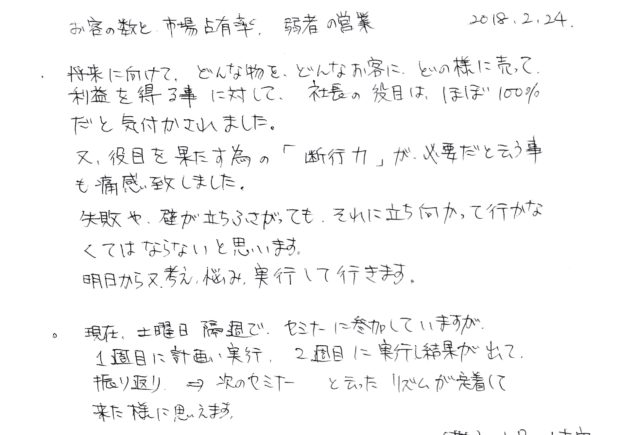 お客の数と市場占有率、弱者の営業 2018.2.24.
・将来に向けて、どんな物を、どんなお客に、どの様に売って、
利益を得る事に対して、社長の役目は、ほぼ100%
だと気付かされました。
又、役目を果たす為の「断行力」が、必要だと云う事
も痛感致しました。
失敗や、壁が立ちふさがっても、それに立ち向かって行かな
くてはならないと思います。
明日から又、考え、悩み、実行して行きます。
。現在、土曜日隔週で、セミナーに参加していますが、
1週目に計画い実行、2週目に実行し結果が出て、
振り返り ⇒ 次のセミナー と云った リズムが定着して
来た様に思えます。